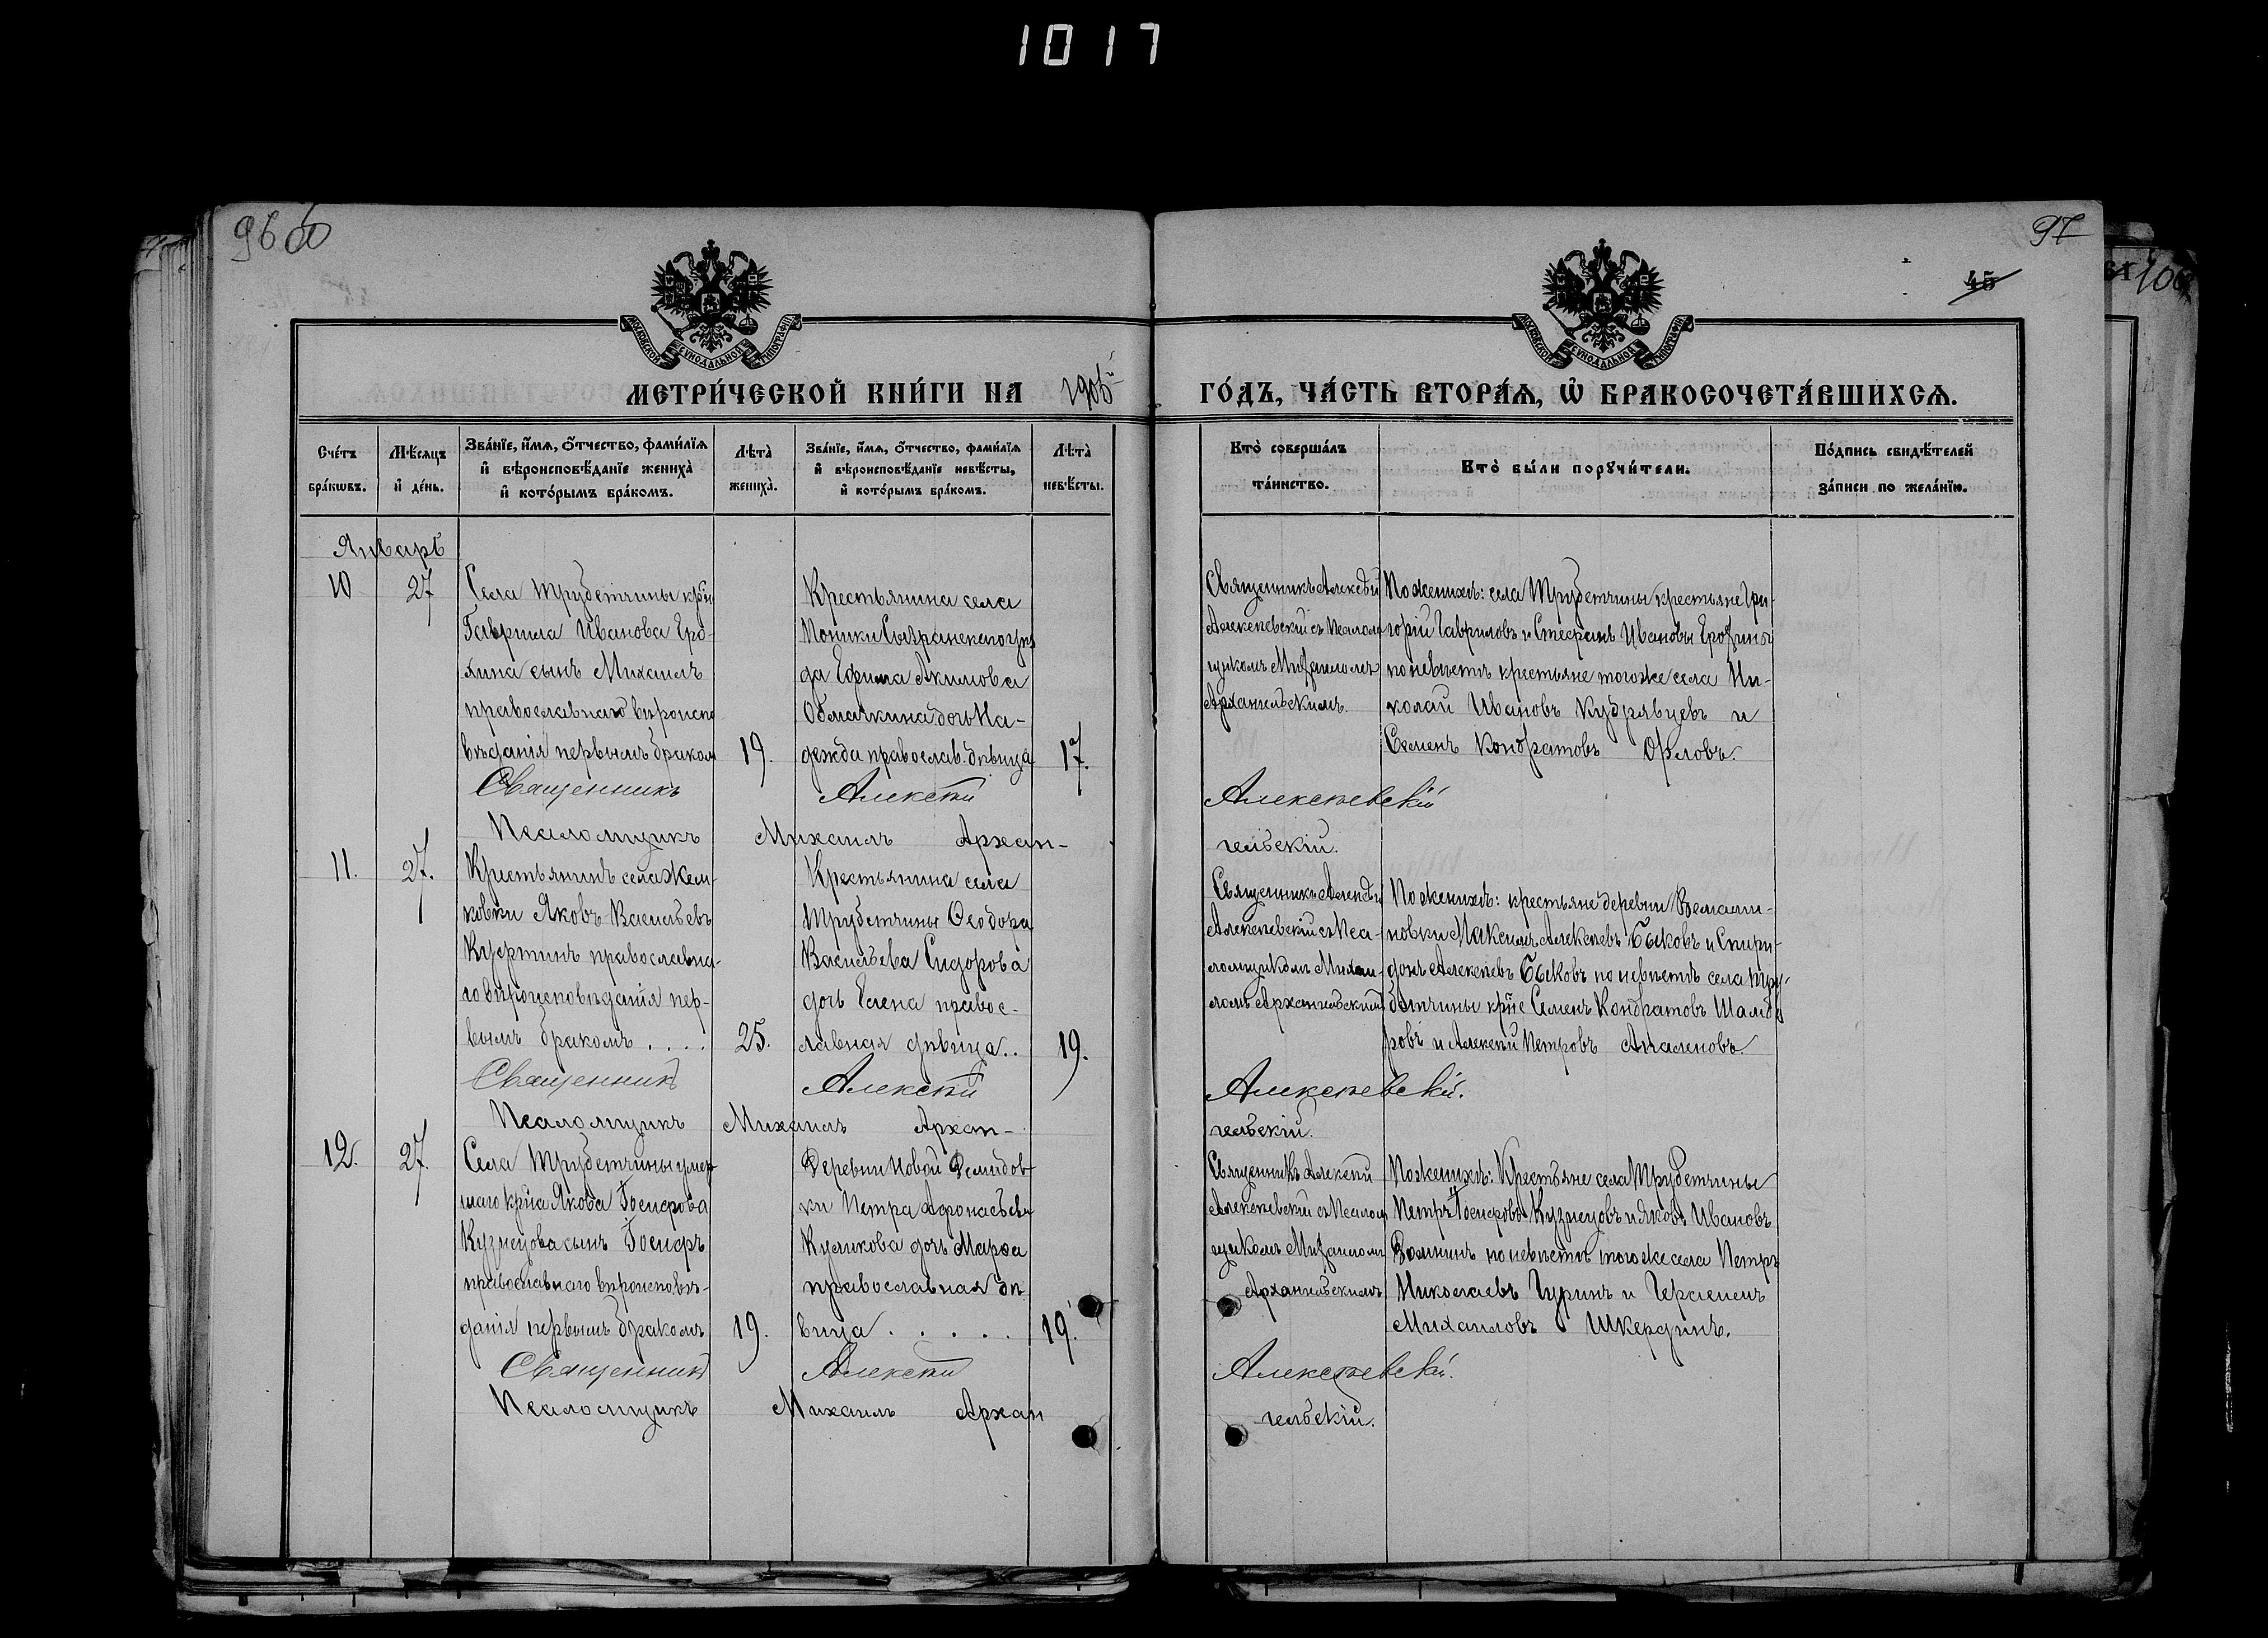 1017
96 об
97
45
100
МОСКОВСКОЙ СѴНОДАЛЬНОЙ ТИПОГРАФІИ
МОСКОВСКОЙ СѴНОДАЛЬНОЙ ТИПОГРАФІИ
МЕТРИ́ЧЕСКОЙ КНИ́ГИ НА 1906й ГО́ДЪ, ЧА́СТЬ ВТОРА́Ѧ, Ѽ БРАКОСОЧЕТА́ВШИХСѦ.
Сче́тъ
бра́кѡвъ.
Мѣ́сяцъ
и҆ де́нь.
Зва́нїе, и҆́мѧ, ѻ҆́тчество, фами́лїѧ
и҆ вѣроисповѣ́данїе жениха̀
и҆ кото́рымъ бра́комъ.
Лѣта̀
жениха̀.
Зва́нїе, и҆́мѧ, ѻ҆́тчество, фами́лїѧ
и҆ вѣроисповѣ́данїе невѣ́сты,
и҆ кото́рымъ бра́комъ.
Лѣта̀
невѣ́сты.
Кто̀ соверша́лъ
та́инство.
Кто̀ бы́ли порꙋчи́тели.
По́дпись свидѣ́телей
за́писи по жела́нїю.
Январь
10
27
Села Трубетчины кр҃на
Гаврила Иванова Еро-
хина сынъ Михаилъ
православнаго вѣроиспо
вѣданія первымъ бракомъ
19.
Крестьянина села
Моники Сызранскаго уѣз
да Ефима Акимова
дочь На-
дежда правосла. дѣвица
17.
Священникъ Алексѣй
Алексѣевскій съ Псалом
щикомъ Михаиломъ
Архангельскимъ.
По женихѣ: села Трубетчины крестьяне Гри-
горій Гавриловъ и Стефанъ Ивановы Ерохины
по невѣстѣ крестьяне того же села Ни-
колай Ивановъ Кудрявцевъ и
Семенъ Кондратовъ Орловъ.
Священникъ Алексѣй Алексѣевскій
Псаломщикъ Михаилъ Архан- гельскій.
11.
27.
Крестьянинъ села Жем-
ковки Яковъ Васильевъ
православна-
го вѣроисповѣданія пер-
вымъ бракомъ . . . .
25.
Крестьянина села
Трубетчины Ѳеодора
Васильева Сидорова
дочь Елена правос-
лавная дѣвица..
19.
Священникъ Алексѣй
Алексѣевскій съ Пса-
ломщикомъ Михаи-
ломъ Архангельскимъ
По женихѣ: крестьяне деревни
новки Максимъ Алексѣевъ Быковъ и Спири-
донъ Алексѣевъ Быковъ по невѣстѣ села Тру-
бетчины кр҃не Семенъ Кондратовъ
ровъ и Алексѣй Петровъ
Священникъ Алексѣй Алексѣевскій.
Псаломщикъ Михаилъ Архан- гельскій.
12.
27.
Села Трубетчины умер
шаго кр҃на Якова Іосифова
Кузнецова сынъ Іосифъ
православнаго вѣроисповѣ-
данія первымъ бракомъ
19.
Деревни Новой Демидов
ки Петра Афонасьева
Куликова дочь Марѳа
православная дѣ
вица . . . . .
19.
Священникъ Алексѣй
Алексѣевскій съ Псалом
щикомъ Михаиломъ
Архангельскимъ
По женихѣ: Крестьяне села Трубетчины
Петръ Іосифовъ Кузнецовъ и Яковъ Ивановъ
по невѣстѣ того же села Петръ
Николаевъ Гуринъ и Герасимъ
Михаиловъ Шкердинъ.
Священникъ Алексѣй Алексѣевскій.
Псаломщикъ Михаилъ Архан гельскій.